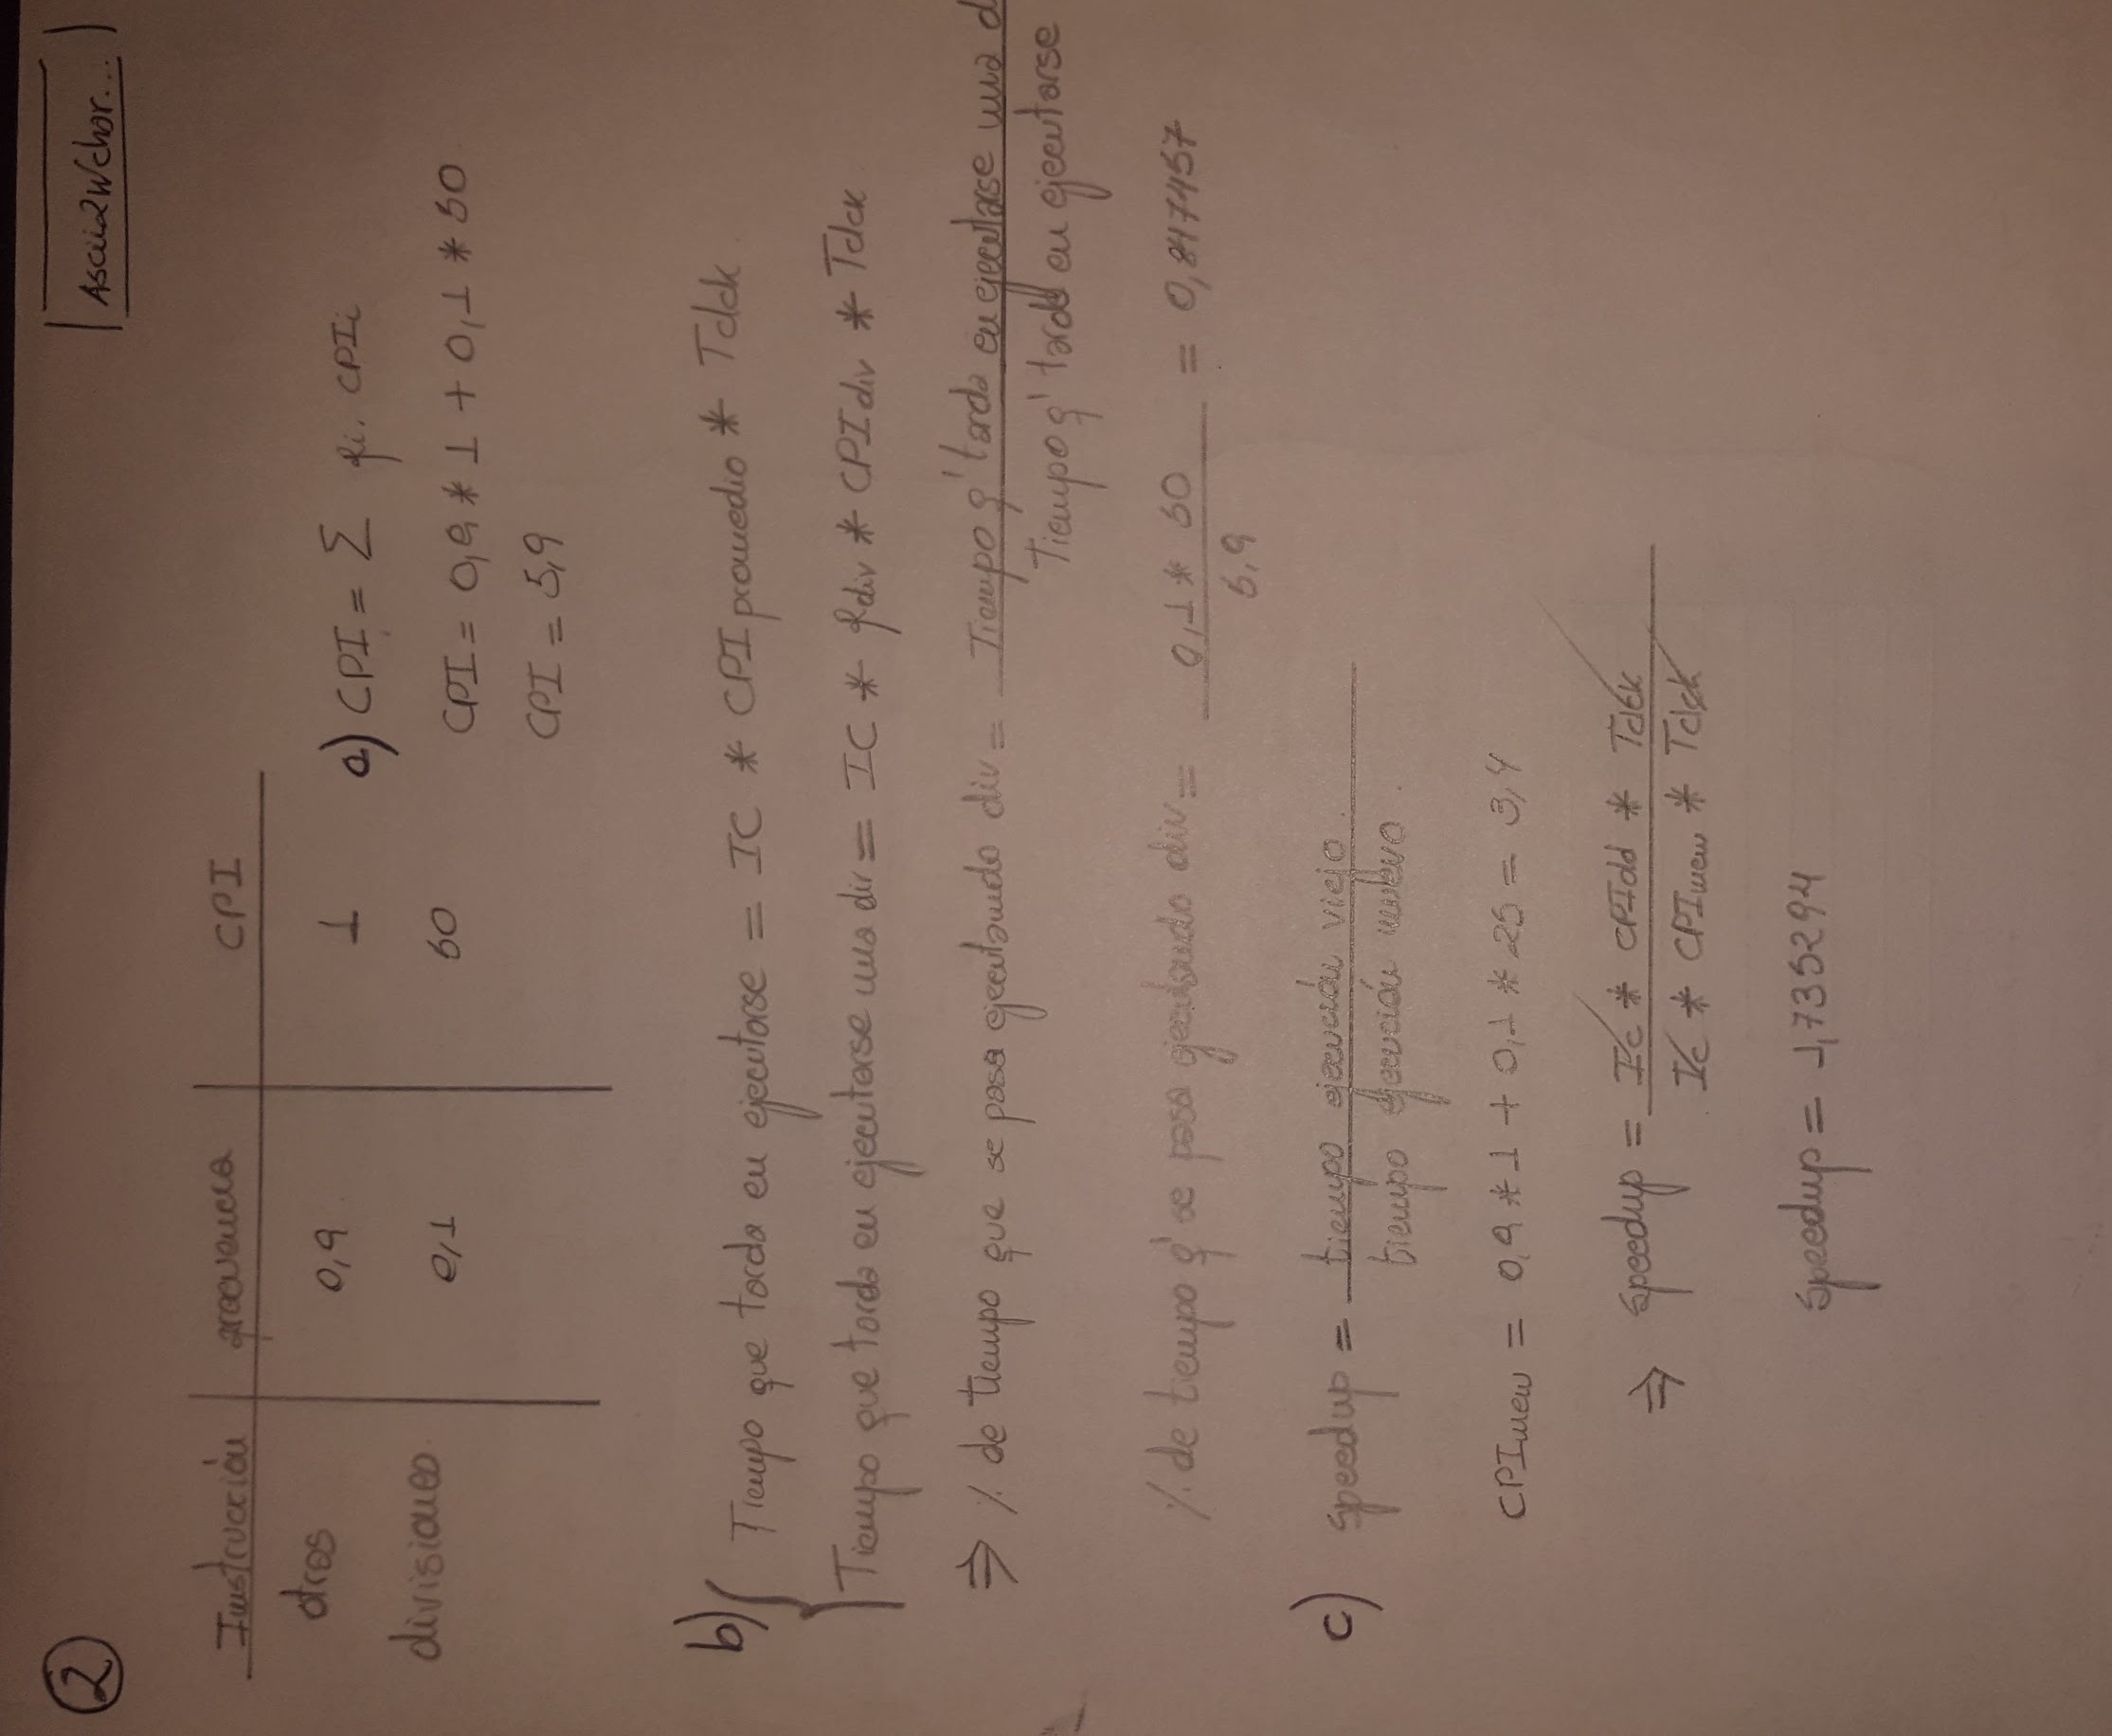 2
Ascii2Wchar...
Instrucción frecuencia CPI
otros 0,9 1
divisiones 0,1 50
a) CPI = Σ fi. CPIi
CPI = 0,9 * 1 + 0,1 * 50
CPI = 5,9
b) Tiempo que tarda en ejecutarse = IC * CPI promedio * Tclck
Tiempo que tarda en ejecutarse una div = IC * fdiv * CPIdiv * Tclck
⇒ % de tiempo que se pasa ejecutando div = Tiempo q' tarda en ejecutarse una d
Tiempo q' tarda en ejecutarse
% de tiempo q' se pasa ejecutando div = 0,1 * 50 = 0,847457
5,9
c) speedup = tiempo ejecución viejo.
tiempo ejecución nuevo.
CPInew = 0,9 * 1 + 0,1 * 25 = 3,4
⇒ speedup = Ic * CPIold * Tclck
Ic * CPInew * Tclck
speedup = 1,735294